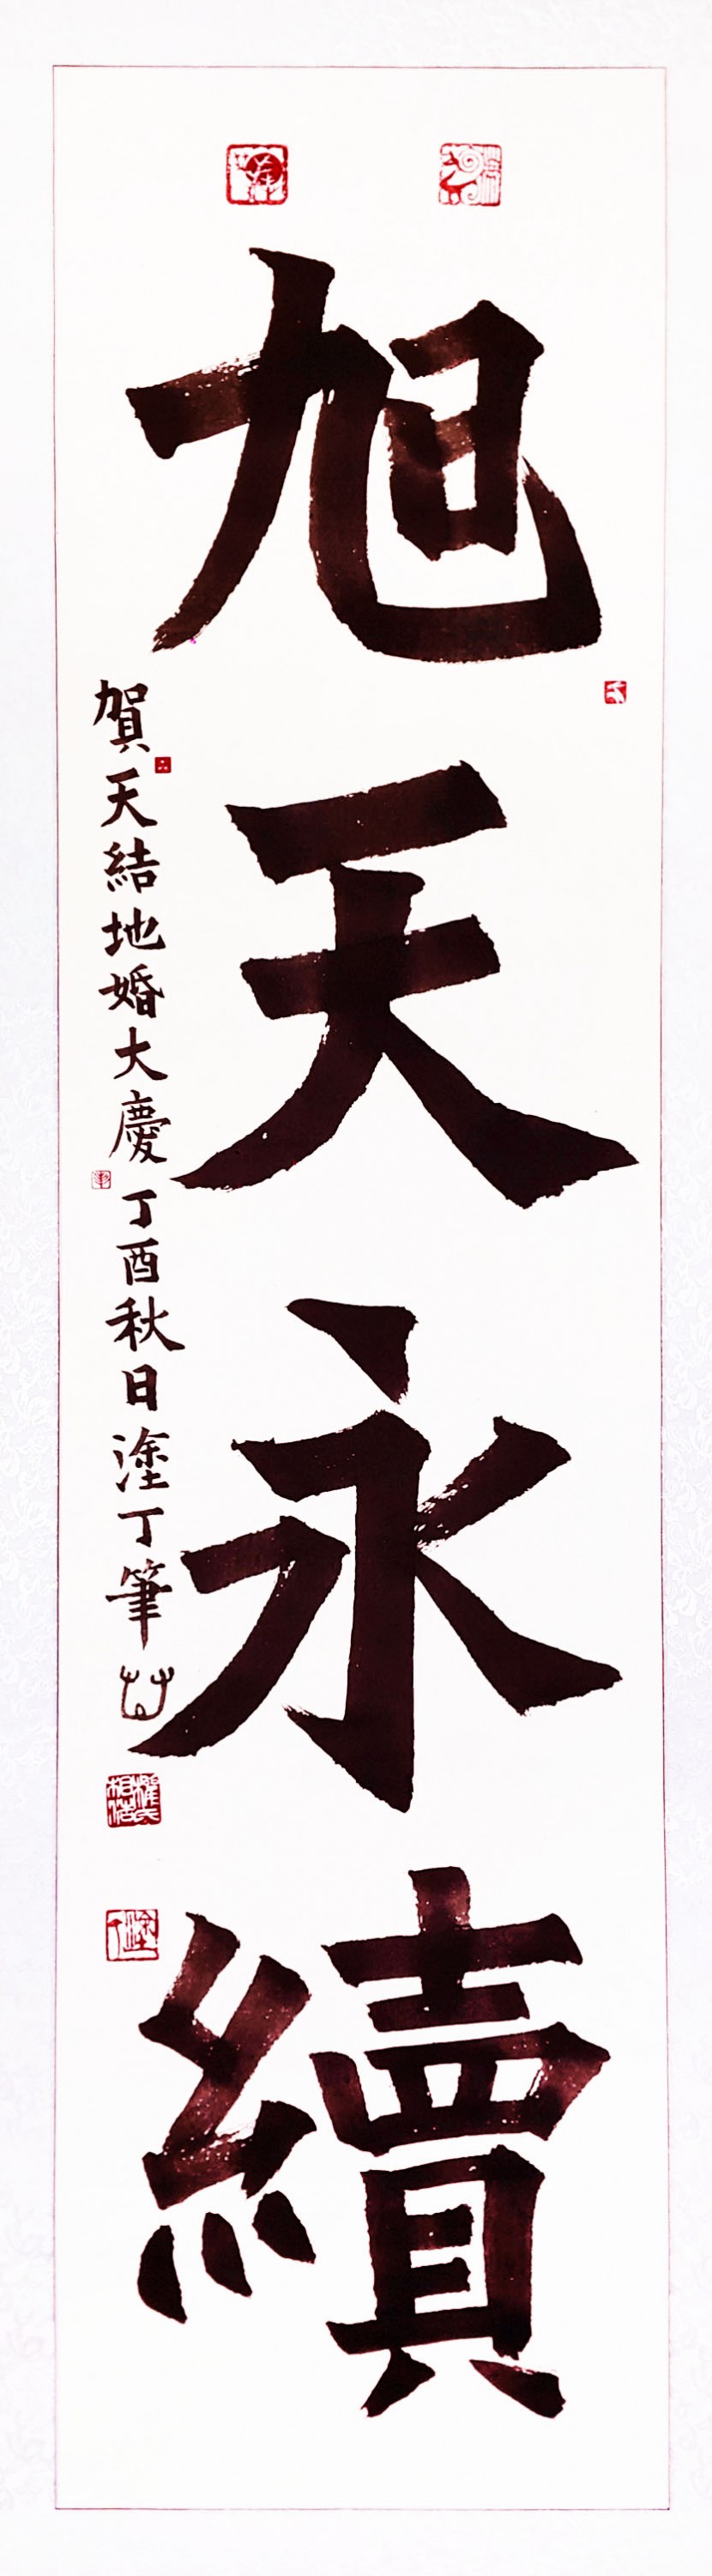 旭天永續
賀天結地婚大慶丁酉秋日塗丁筆
塗丁